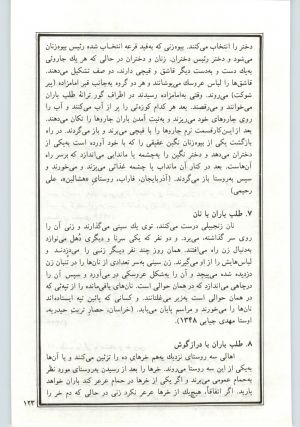 دختر را انتخاب می‌کنند. بیوه‌زنی که به‌قید قرعه انتخاب شده رئیس بیوه‌زنان
و دختر رئیس دختران. زنان و دختران در حالی که هر یک جاروئی
به‌یك دست و به‌دست دیگر قاشق و قیچی دارند، دو صف تشکیل می‌دهند.
قاشق‌ها را لباس عروسك می‌پوشانند و هر دو گروه به‌جانب قبر امامزاده (پیر
شوکت) می‌روند. وقتی به‌امامزاده رسیدند در اطراف گور ترانهٔ طلب باران
می‌خوانند و می‌رقصند. بعد هر کدام کوزه‌ئی را پر از آب می‌کنند و آب را
روی جاروهای خود می‌ریزند و به‌نیت آمدن باران جاروها را تکان می‌دهند.
بعد از این کار قسمت نرم جاروها را با قیچی می‌برند و باز می‌گردند. در راه
بازگشت یکی از بیوه‌زنان نگین عقیقی را که با خود آورده است به‌یکی از
دختران می‌دهد و دختر نگین را به‌چشمه یا ماندابی می‌اندازد که بر سر راه
آن‌هاست. بعد در کنار آن مانداب یا چشمه غذائی می‌پزند و می‌خورند و
سپس به‌روستا باز می‌گردند. (آذربایجان، فاراب، روستای «هشالین»، علی
رحیمی)
۷. طلب باران با نان
نان زنجبیلی درست می‌کنند، توی یك سینی می‌گذارند و زنی آن را
روی سر گذاشته، می‌برد. و دو نفر که یکی سرنا و دیگری دُهل می‌نوازد
به‌دنبال زن راه می‌افتند. همان روز چند نفر دیگر زنی را می‌دزدند و
لباس‌هایش را از او می‌گیرند. زن سینی به‌سر تعدادی از نان‌ها را در لباس زن
دزدیده شده می‌پیچد و آن را به‌شکل عروسکی در می‌آورد و سپس آن را
درچاهی می‌اندازد که در همان حوالی است. نان‌های باقی‌مانده را از تپه‌ئی که
در همان حوالی است به‌زیر می‌غلتانند. و کسانی که پائین تپه ایستاده‌اند
نان‌ها را می‌خورند و مراسم پایان می‌یابد. (خراسان، حصار تربت حیدریه،
اوستا مهدی جبابی ۱۳۴۸)
۸. طلب باران با درازگوش
اهالی سه روستای نزدیك بهم خرهای ده را تزئین می‌کنند و با آن‌ها
به‌یکی از این سه روستا می‌روند. خرها را بعد از رسیدن به‌روستای مورد نظر
به‌حمام عمومی می‌برند و اگر یکی از خرها در حمام عرعر کند باران خواهد
بارید. اگر اتفاقاً، هیچ‌یك از خرها عرعر نکرد زنی در حالی که دم خر را
۱۲۳